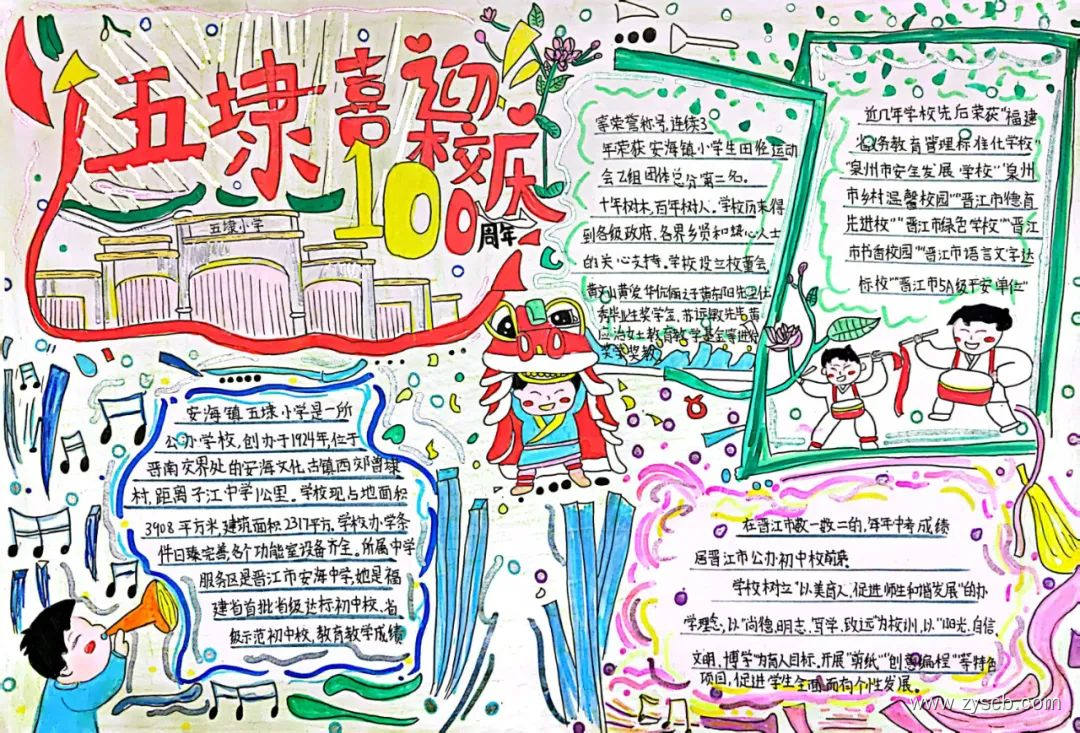 五埭喜迎校庆
100周年
五埭小学
安海镇五埭小学是一所
公办学校,创办于1924年,位于
晋南交界处的安海文化古镇西郊曾埭
村,距离子江中学1公里。学校现占地面积
3908平方米,建筑面积2317平方,学校办学条
件日臻完善,各个功能室设备齐全。所属中学
服务区是晋江市安海中学,她是福
建省首批省级达标初中校、省
级示范初中校,教育教学成绩
在晋江市数一数二的,年年中考成绩
居晋江市公办初中校前
学校树立“以美育人,促进师生和谐发展”的办
学理念,以“尚德,明志,写学,致远”为校训,以“阳光,自信,
文明,博学”为育人目标,开展“剪纸”“创客编程”等特色
项目,促进学生全面而有个性发展。
近几年学校先后荣获“福建
省义务教育管理标准化学校”
“泉州市安生发展学校”“泉州
市乡村温馨校园”“晋江市德育
先进校”“晋江市绿色学校”“晋江
市书香校园”“晋江市语言文字达
标校”“晋江市5A级平安单位”
等荣誉称号,连续3
年荣获安海镇小学生田径运动
会乙组团体总分第二名。
十年树木,百年树人。学校历来得
到各级政府、各界乡贤和热心人士
的关心支持。学校设立校董会,
秀毕业生奖学金,苏远敏先生黄
教育教学基金等进行
奖学奖教
www.zyseb.com